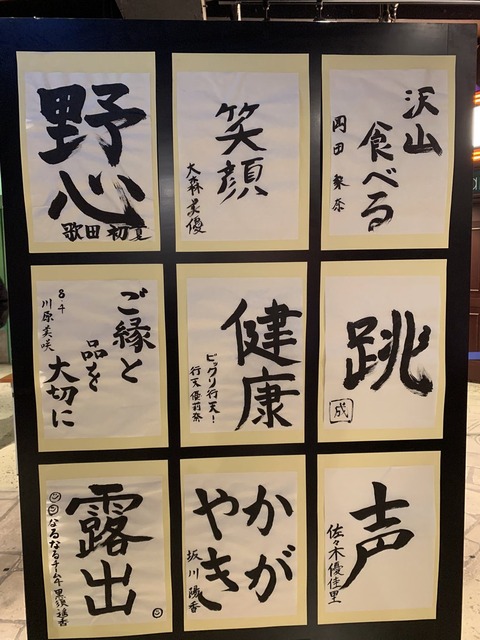 野心
歌田初夏
笑顔
大森美優
沢山
食べる
岡田梨奈
ご縁と
品を
大切に
川原美咲
健康
ビックリ行天!
行天優莉奈
跳
成
露出
黒須遥香
かが
やき
坂川陽香
声
佐々木優佳里